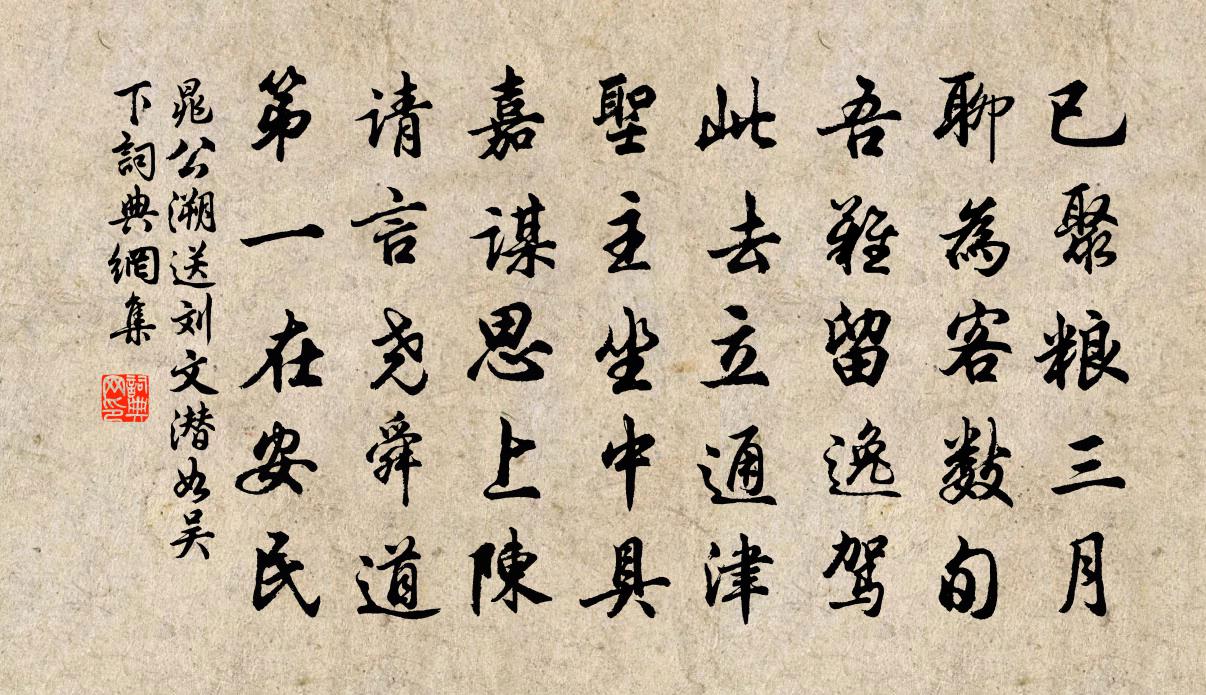 已聚粮三月
聊為客数旬
吾難留逸驾
此去立通津
聖主坐中具
嘉謀思上陳
请言尧舜道
第一在安民
晁公溯送刘文潜如吴
下詞典網集
詞典
网印